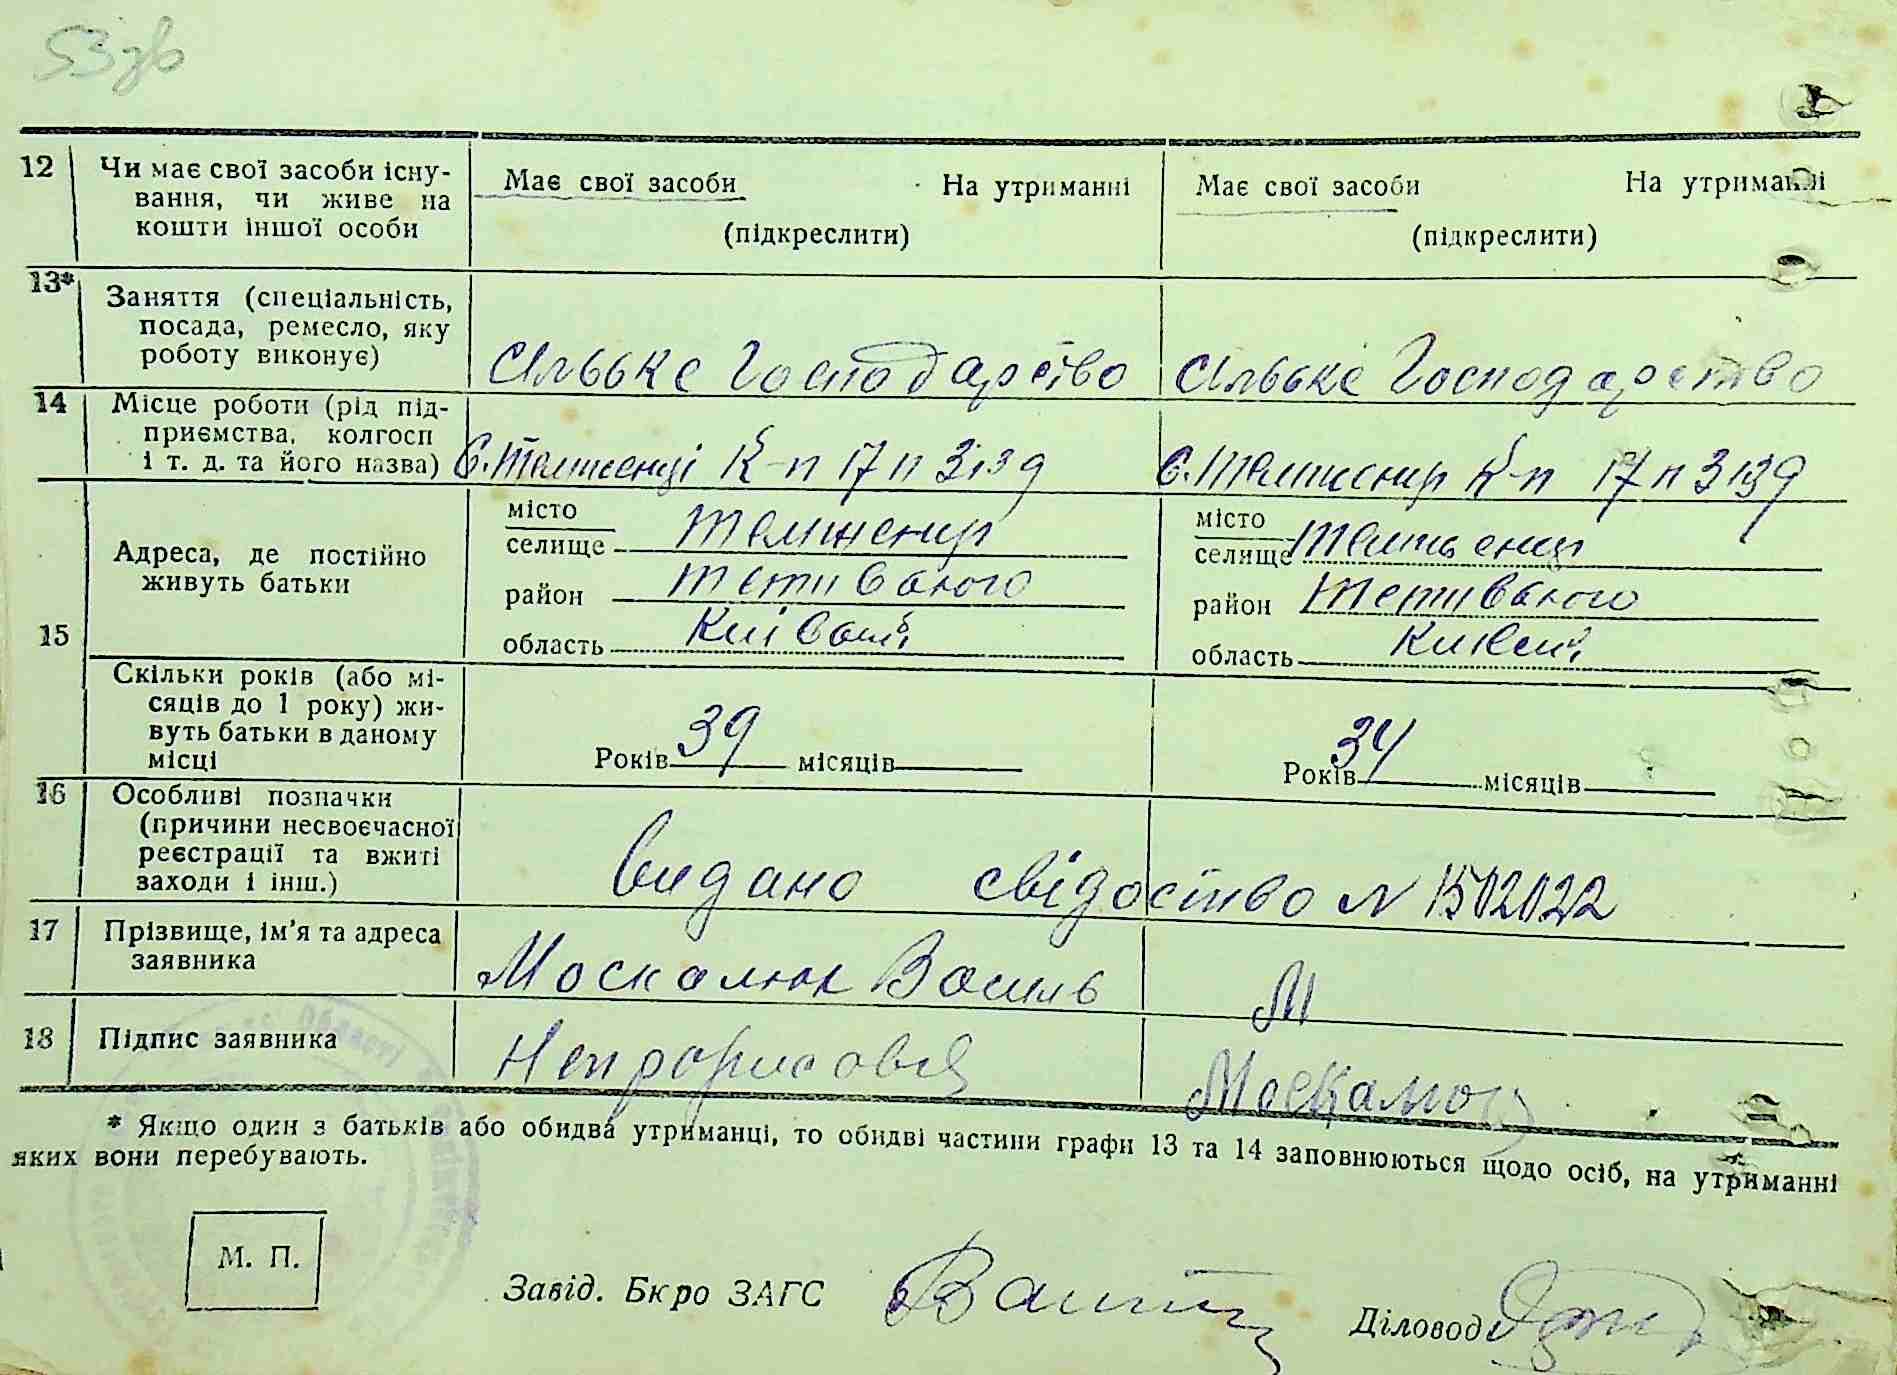 53 зв
12 Чи має свої засоби існу-
вання, чи живе на
кошти іншої особи
Має свої засоби На утриманні
(підкреслити)
Має свої засоби На утриманні
(підкреслити)
13* Заняття (спеціальність,
посада, ремесло, яку
роботу виконує)
Сільське Господарство
Сільське Господарство
14 Місце роботи (рід під-
приємства, колгосп
і т. д. та його назва)
К-п 17 п З'їзд
К-п 17 п З'їзд
15 Адреса, де постійно
живуть батьки
місто
селище
район
область
місто
селище
район
область
Скільки років (або мі-
сяців до 1 року) жи-
вуть батьки в даному
місці
Років 39 місяців
Років 34 місяців
16 Особливі позначки
(причини несвоєчасної
реєстрації та вжиті
заходи і інш.)
Видано свідоство N 1502022
17 Прізвище, ім'я та адреса
заявника
Москалюк Василь
М
18 Підпис заявника
Москалюк
* Якщо один з батьків або обидва утриманці, то обидві частини графи 13 та 14 заповнюються щодо осіб, на утриманні
яких вони перебувають.
М. П.
Завід. Бюро ЗАГС
Діловод